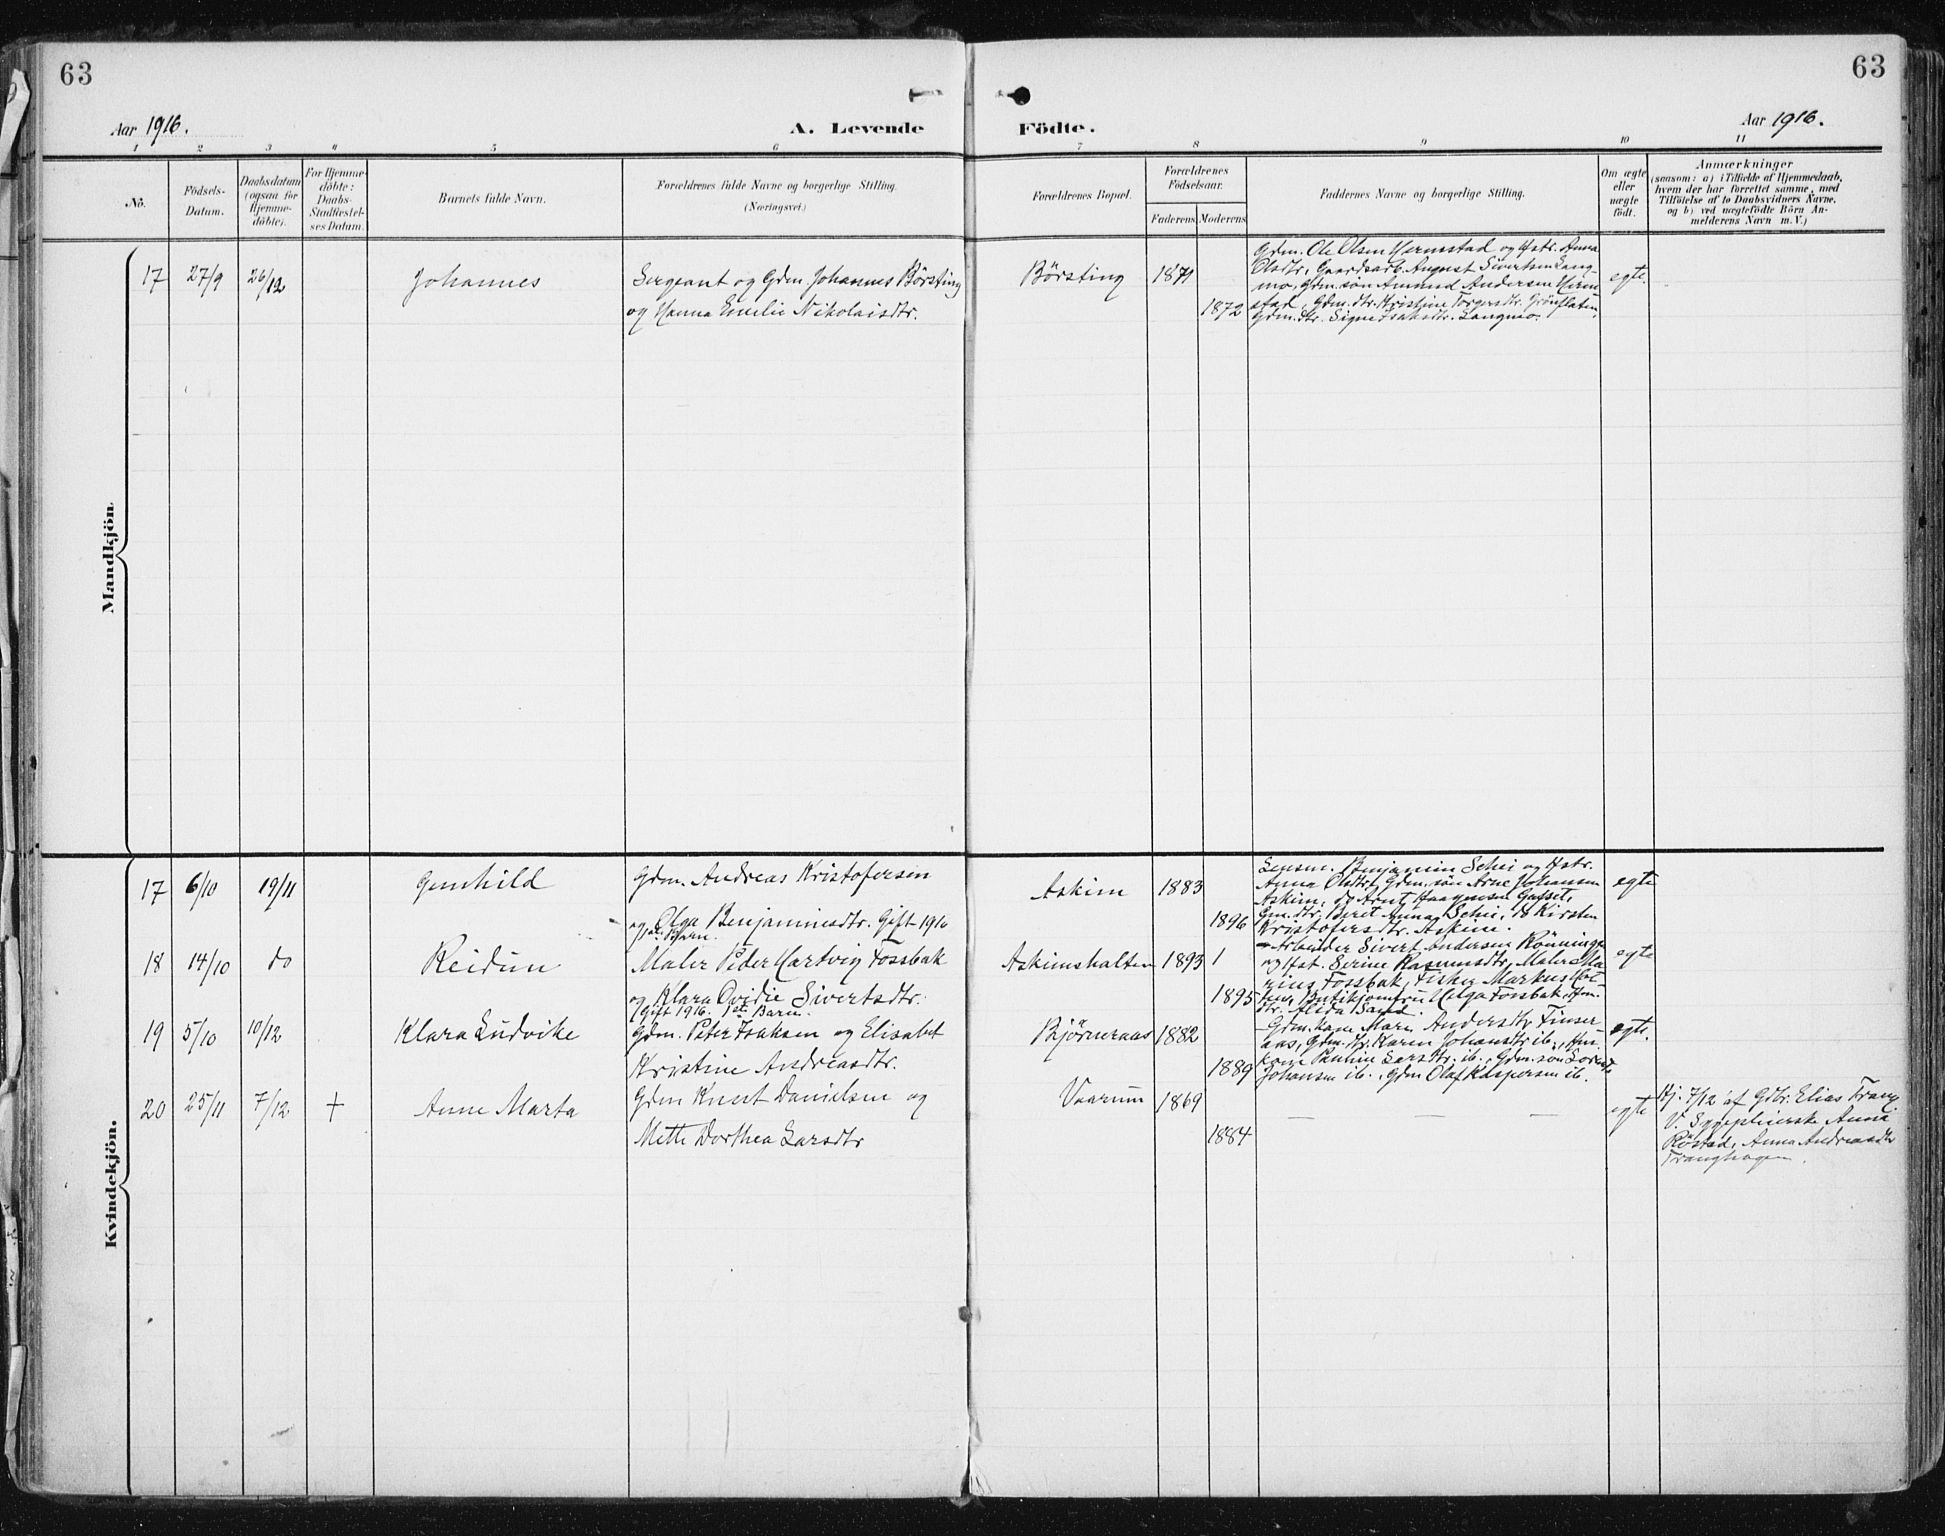 63
63
Aar 1916.
A. Levende Födte.
Aar 1916.
1 2 3 4 5 6 7 8 9 10 11
No.
Födsels-
Datum.
Daabsdatum
(ogsaa for
Hjemme-
döbte).
For Hjemme-
döbte:
Daabs-
Stadfæstel-
ses Datum.
Barnets fulde Navn.
Forældrenes fulde Navne og borgerlige Stilling.
(Næringsvei.)
Forældrenes Bopæl.
Forældrenes
Födselsaar.
Faderens Moderens
Faddernes Navne og borgerlige Stilling.
Om ægte
eller
uægte
födt.
Anmærkninger
(saasom: a) i Tilfælde af Hjemmedaab,
hvem der har forrettet samme, med
Tilföielse af to Daabsvidners Navne,
og b) ved uægtefödte Börn An-
melderens Navn m. V.)
Mandkjön.
17 27/9 26/12
Johannes
Sergeant og Gdm. Johannes Börsting
og Hanna Emelie Nikolaisdtr.
Börsting
1871
1872
Gdm. Ole Olsen Hermstad og Hstr. Anna
Olsdtr, Gaardsarb. August Sivertsen Lang-
mo, Gdm. sön Amund Andersen Herm-
stad, Gdm. dtr. Kristine Torgersdtr. Grönflaten,
Gdm. dtr. Signe Isaksdtr. Langmo.
egte.
Kvindekjön.
17 6/10 19/11
Gunhild
Gdm. Andreas Kristofersen
og Olga Benjaminsdtr. Gift 1916
1ste Barn.
Askim
1883
1896
Lensm. Benjamin Schei og Hstr.
Anna Olsdtr, Gdm. sön Arne Johansen
Askim, do Arnt Haagensen Galset,
Gm. dtr. Beret Anna Schei, do Kirsten
Kristofersdtr. Askim.
egte
18 14/10 do
Reidun
Maler Peder Hartvig Fossbak
og Klara Ovidie Sivertsdtr.
Gift 1916. 1ste Barn.
Askimshalten
1893
1895
Arbeider Sivert Andersen Rönningen
og Hst. Serine Rasmusdtr, Maler Ma-
rius Fossbak, Fisker Markus
Butikjomfru Helga Fossbak, Hm.
dtr. Alida Sand.
egte
19 5/10 10/12
Klara Ludvike
Gdm. Peter Isaksen og Elisabet
Kristine Andreasdtr.
Bjørneraas
1882
1889
Gdm. kone Marie Andersdtr Finser-
aas, Gdm. dtr. Karen Johansdtr ib., Hm.
kone Pauline Larsdtr. ib., Gdm. sön Lorents
Johansen ib., Gdm Olaf Kaspersen ib.
egte.
20 25/11 7/12 +
Anne Marta
Gdm Knut Danielsen og
Mette Dorthea Larsdtr
Vaarum
1869
1884
— — —
egte
Hj. 7/12 af Gdbr. Elias Trang
V. Sygepleierske Anna
Röstad, Anna Andreasdtr
Tranghagen.